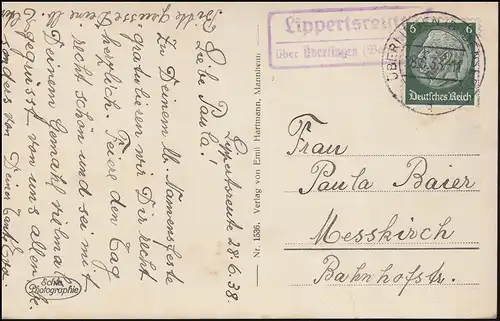 Lippertsreute 28.6.38.
Liebe Paula!
Zu Deinem lb. Namensfeste
gratulieren wir Dir recht
herzlich. Feiere den Tag
recht schön und sei mit
Deinem Gemahl vielmals
gegrüsst von uns allen, be-
sonders von Deiner Tante
Bitte grüsse Deine
Schöning Photographie
Nr. 1536. Verlag von Emil Hartmann, Mannheim
Lippertsreute
über Überlingen
ÜBERLINGEN
6 6
Deutsches Reich
Frau
Paula Baier
Messkirch
Bahnhofstr.